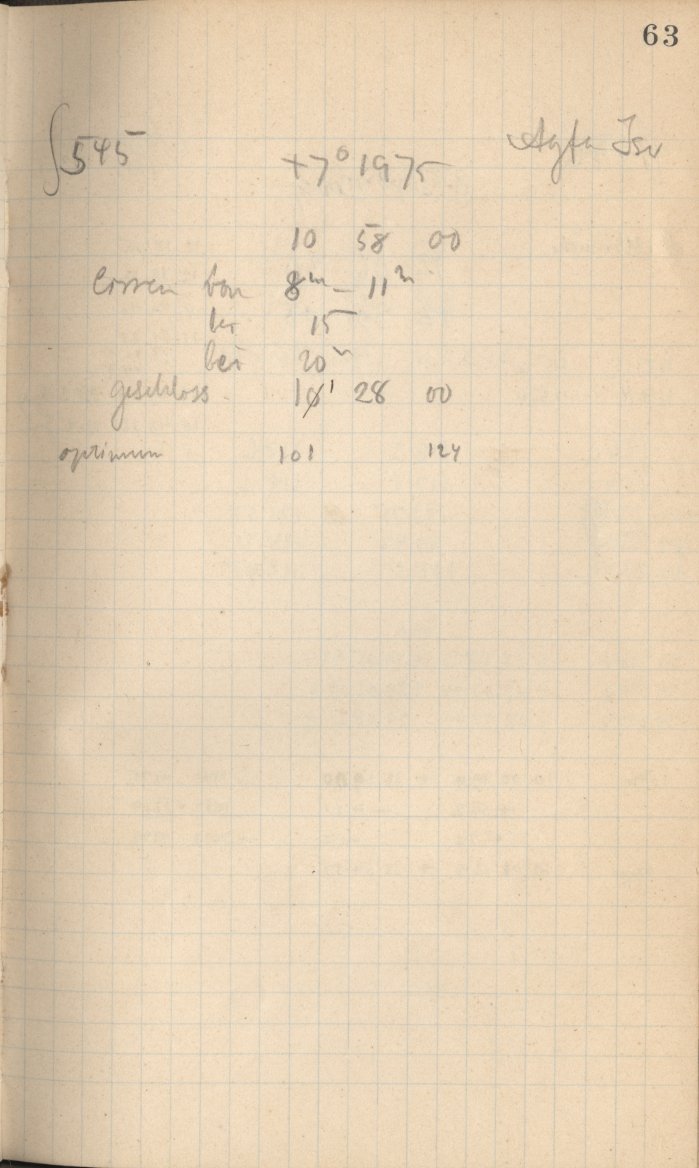 63
∫545 +7° 1975 Agfa Iso
10 58 00
von 8m – 11m
15
bei 20m
geschloss. 1011 28 00
optimum 101 124